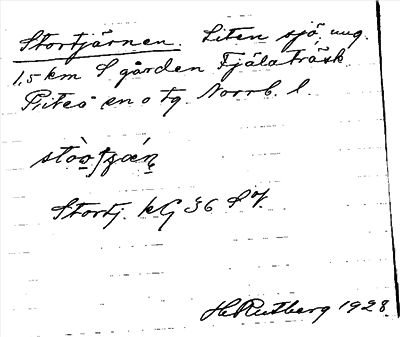 Stortjärnen. Liten sjö ung.
1,5 km S gården Fjälaträsk
Piteå en o tg. Norrb. l.
Stortj. kG 36 SV
H. Rutberg 1928.